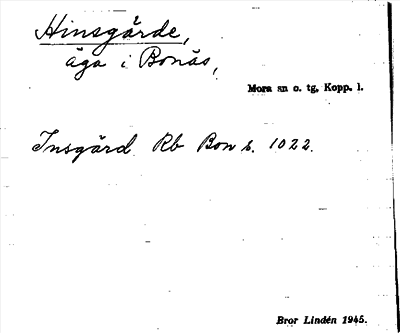 Hinsgärde,
äga i Bonäs,
Mora sn o. tg, Kopp. l.
Insgärd Rb Bon s. 1022.
Bror Lindén 1945.